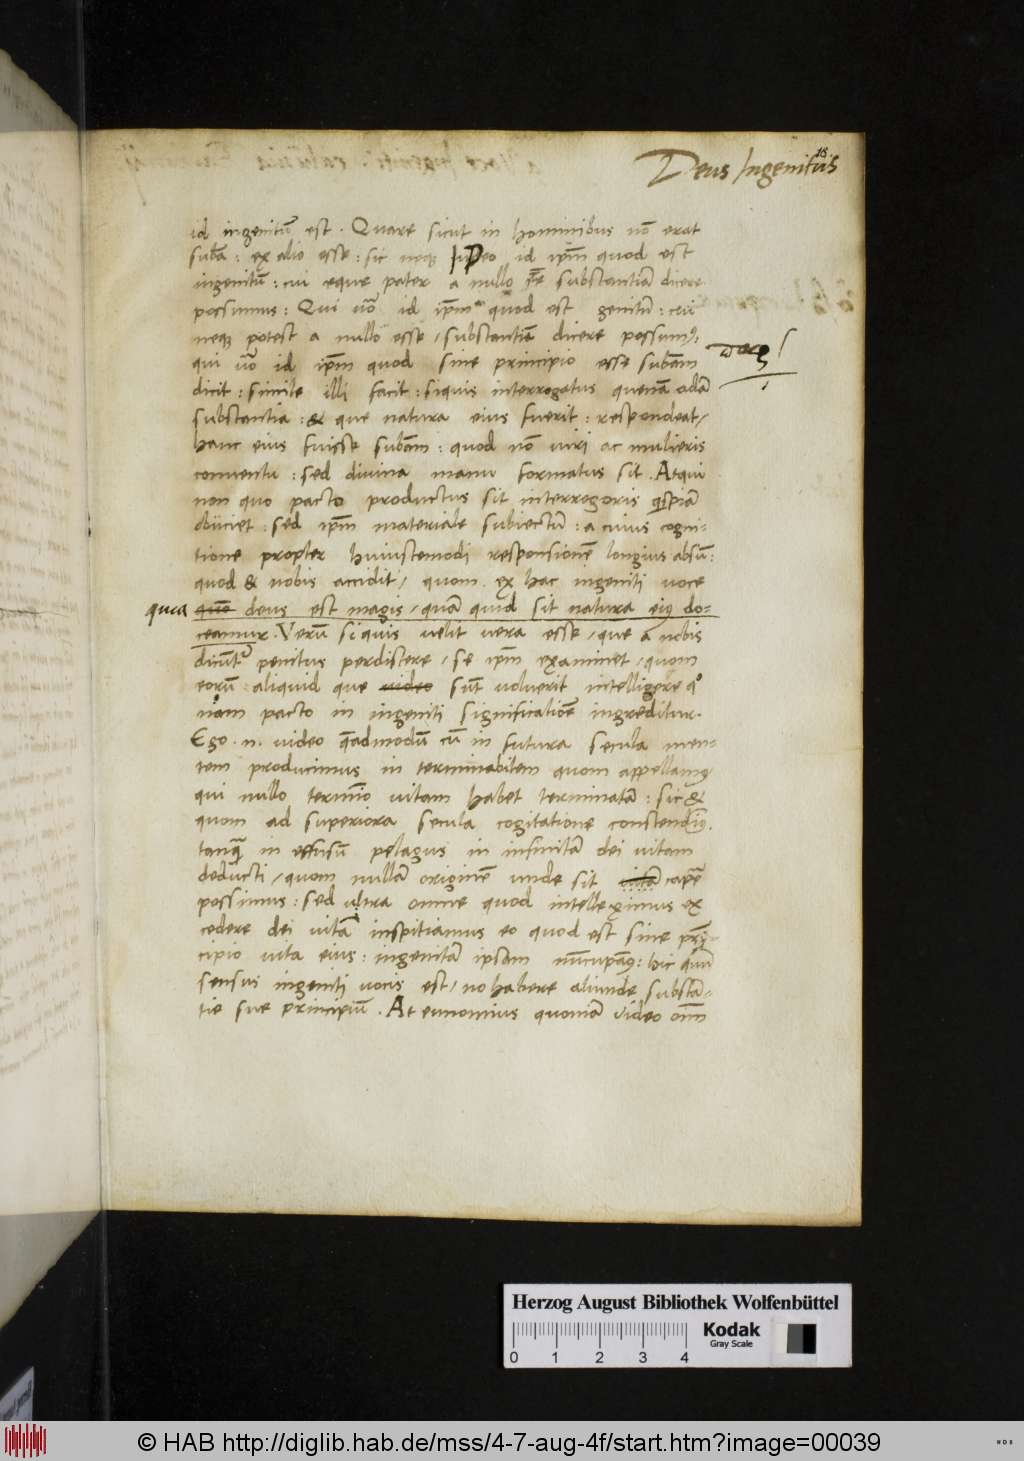 18
Deus Ingenitus
id ingenitũ est . Quare sicut in hominibus nõ erat
subã : ex alio esse : sic neqȝ in Deo id ipm̃ quod est
ingenitũ : cui eque pater a nullo substantiã dicere
possimus : Qui uõ id ipm̃ quod est genitũ : cui
neqȝ potest a nullo esse / substantiã dicere possumꝰ
qui uõ id ipm̃ quod sine principio esse subãm
dicit : simile illi facit : siquis interrogatus quenã adã
substantia : & que natura eius fuerit : respondeat /
hanc eius fuisse subãm : quod nõ uiri ac mulieris
conuentu : sed diuina manu formatus sit . Atqui
non quo pacto productus sit interrogaris qspiã
obiiciet : sed ipm̃ materiale subiectũ : a cuius cogni-
tione propter huiuscemodi responsionẽ longius absũ:
quod & nobis accidit / quom ex hac ingeniti uoce
quia que deus est magis / quã quid sit natura eiꝰ do=
ceamur . Verũ si quis uelit uera esse / que a nobis
dicũtʳ penitus perdiscere / se ipm̃ examinet / quom
eorũ aliquid que video sũt uoluerit intelligere qº
nam pacto in ingeniti significatiõe ingreditur.
Ego . n . video q̃admodũ cũ in futura secula men-
tem producimus in terminabilem quom appellamꝰ/
qui nullo termĩo uitam habet terminatã : sic &
quom ad superiora secula cogitatione conscendimꝰ.
tanq̃ in effusũ pelagus in infinitã dei uitam
deducti / quom nullã originẽ unde sit uitã capẽ
possimus : sed ultra omne quod intelleximus ex
cedere dei uitã inspitiamus eo quod est sine prĩ-
cipio uita eius : ingenitã ipsam nũcupamꝰ : hic quũ
sensus ingeniti uocis est / no habere aliunde substã-
tie sue principiũ . At eunomius quoniã video om̃
Herzog August Bibliothek Wolfenbüttel
0 1 2 3 4
Kodak
Gray Scale
© HAB http://diglib.hab.de/mss/4-7-aug-4f/start.htm?image=00039
HAB